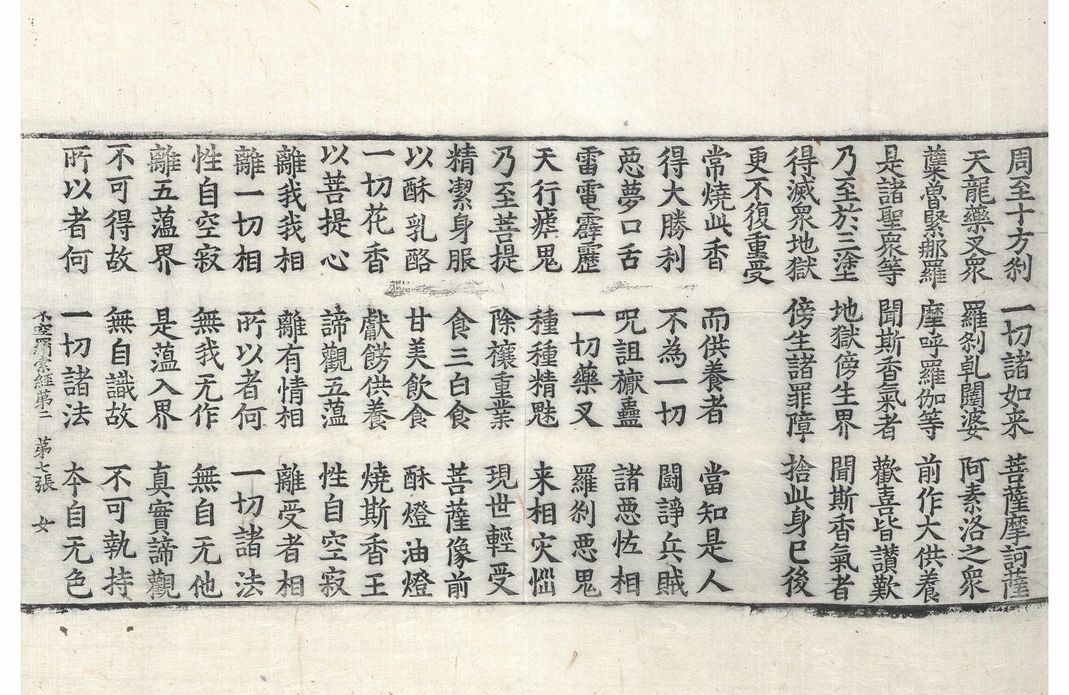 周至十方刹　一切諸如来　菩薩摩訶薩
天龍藥叉衆　羅刹乹闥婆　阿素洛之衆
蘖魯緊那羅　摩呼羅伽等　前作大供養
是諸聖衆等　聞斯香氣者　歡喜皆讃歎
乃至於三塗　地獄傍生界　聞斯香氣者
得滅衆地獄　傍生諸罪障　捨此身已後
更不復重受
常燒此香　而供養者　當知是人
得大勝利　不為一切　鬪諍兵賊
惡夢口舌　呪詛禳蠱　諸惡恠相
雷電霹靂　一切藥叉　羅刹惡鬼
天行瘴鬼　種種精魅　来相灾惱
乃至菩提　除禳重業　現世輕受
精潔身服　食三白食　菩薩像前
以酥乳酪　甘美飲食　酥燈油燈
一切花香　獻餝供養　燒斯香王
以菩提心　諦觀五蕰　性自空寂
離我我相　離有情相　離受者相
離一切相　所以者何　一切諸法
性自空寂　無我无作　無自无他
離五蕰界　是蕰入界　真實諦觀
不可得故　無自識故　不可執持
所以者何　一切諸法　夲自无色
不空羂索經第二　第七張　女